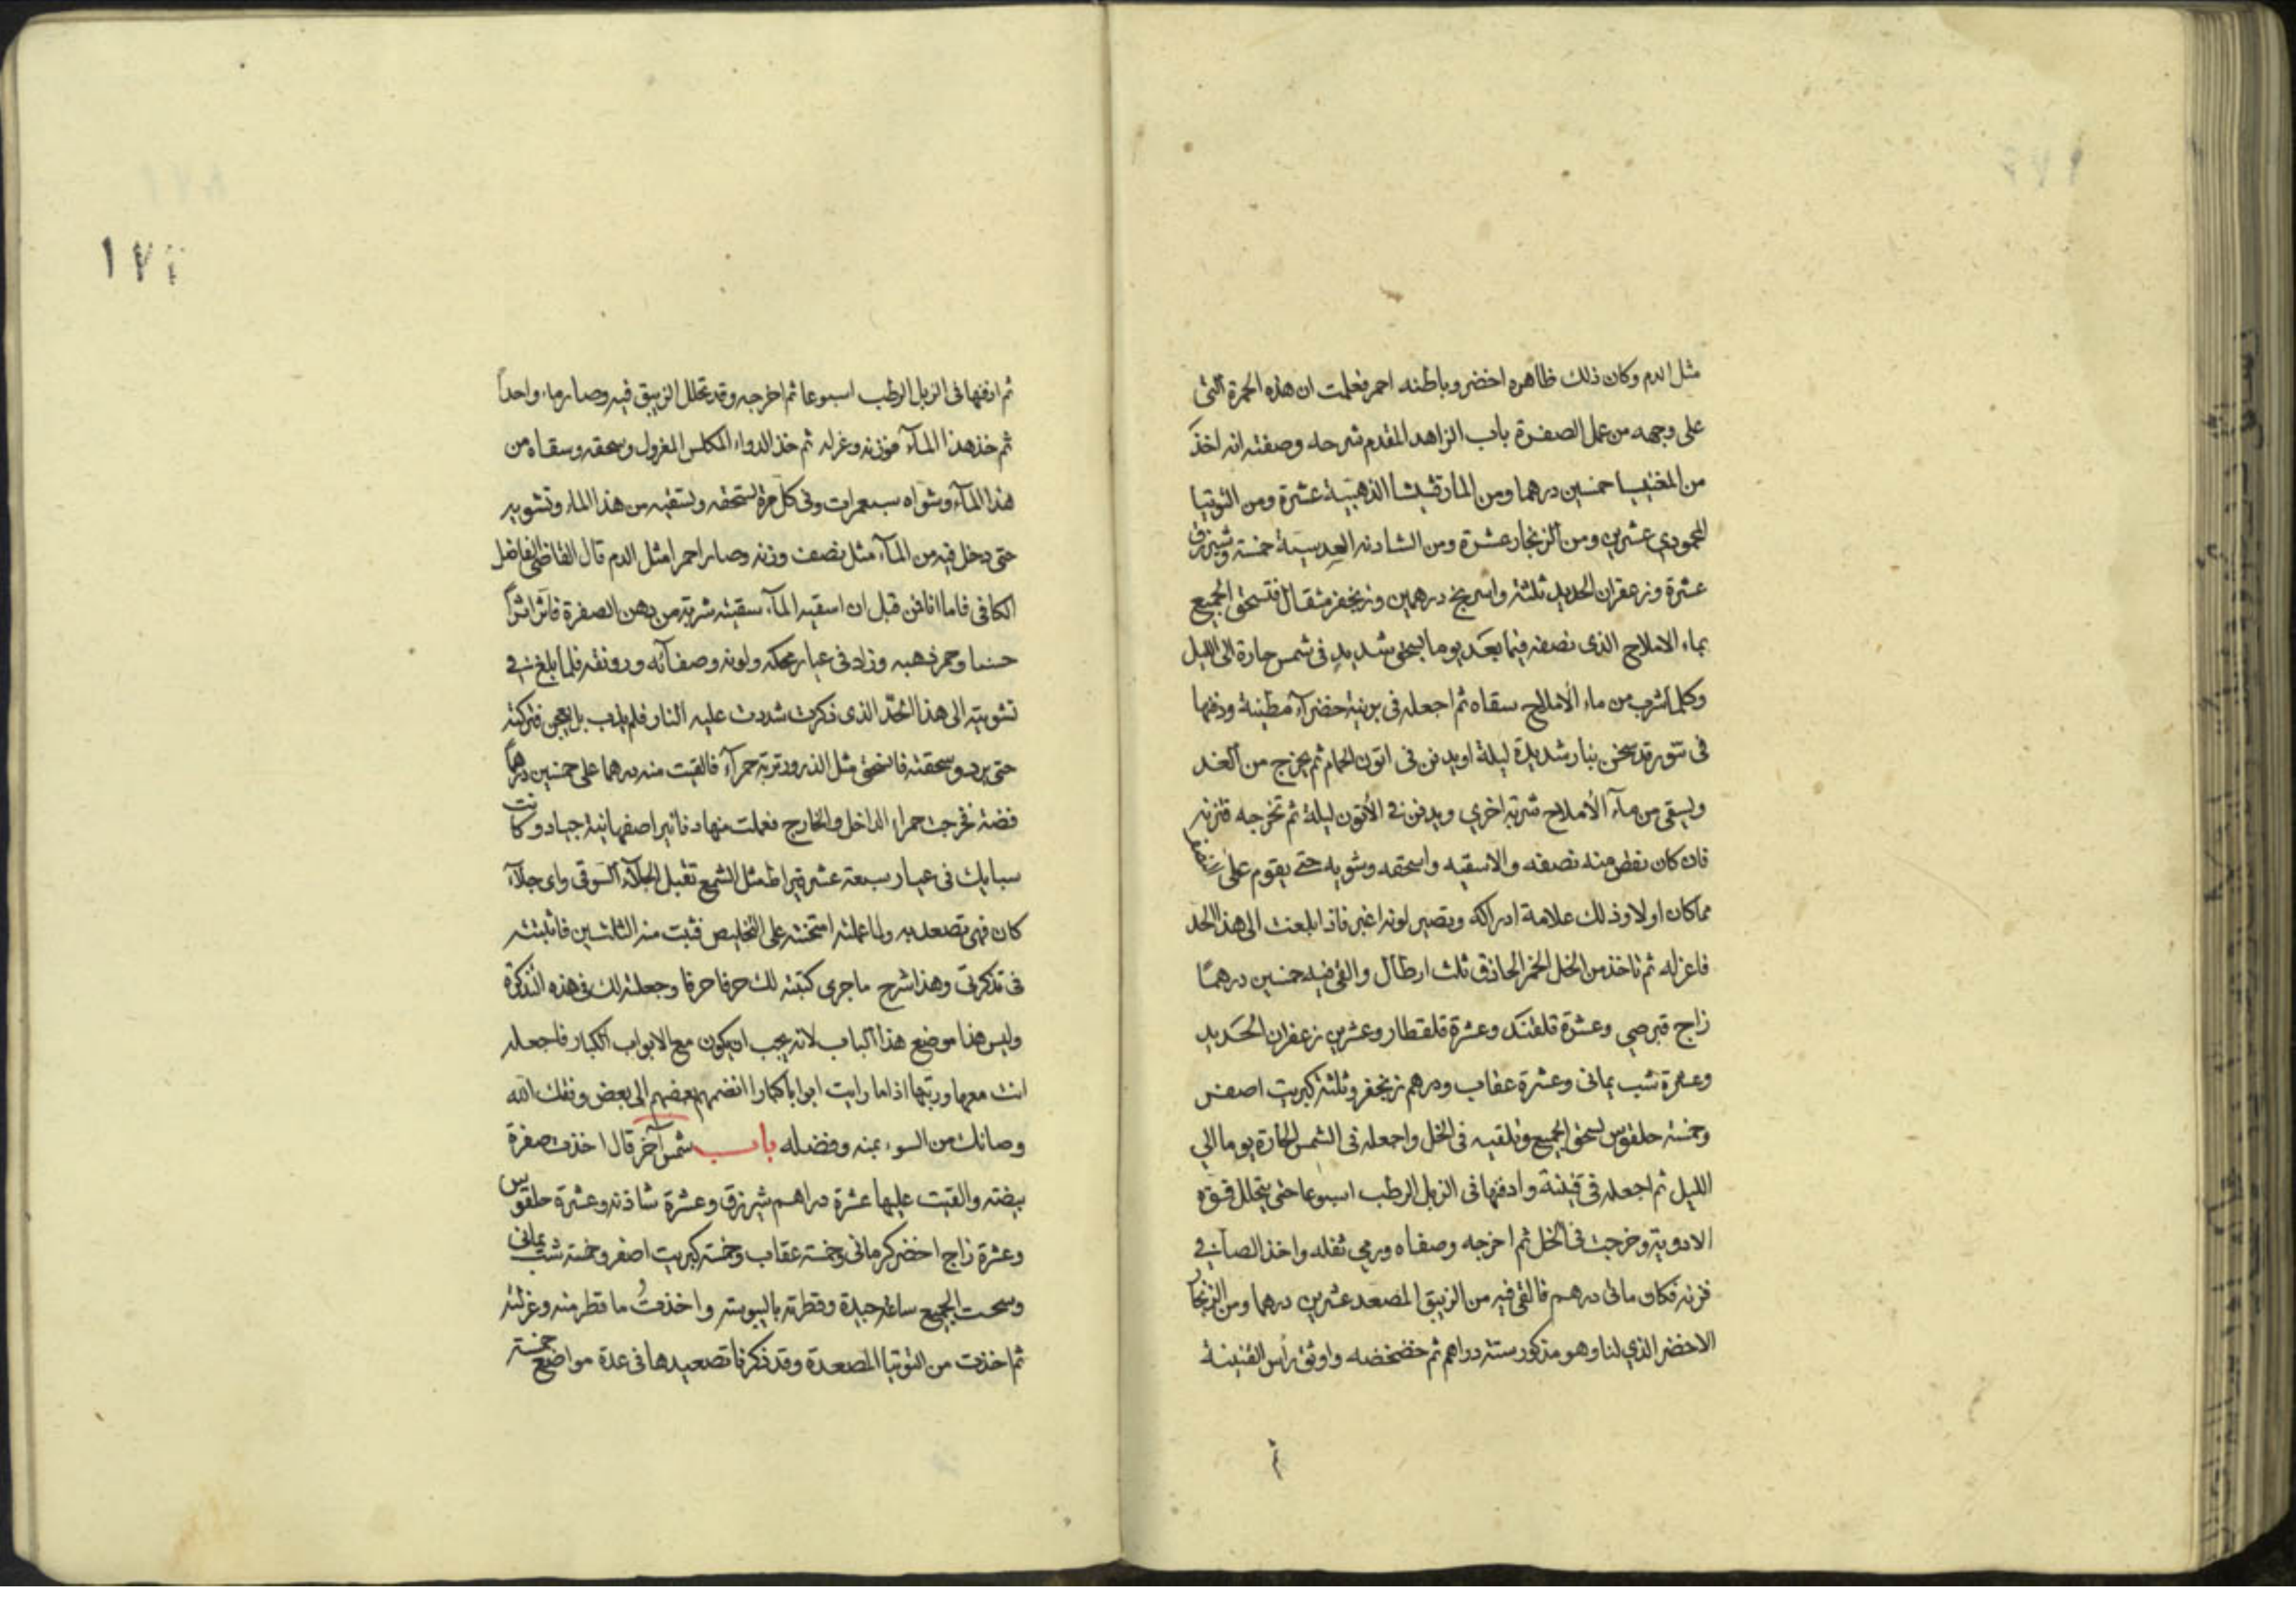 مثل الدم وكان ذلك ظاهره اخضر وباطنه احمر فعلمت ان هذه الحمرة التى
على وجهه من عمل الصفرة باب الزاهد المقدم شرحه وصفته انه اخذ
من المغنيسيا خمسين درهما ومن المارقشيشا الذهبية عشرة ومن التوتيا
المحمودي عشرين ومن الزنجار عشرة ومن الشادنه العدسية خمسة وشيرزق
عشرة وزعفران الحديد ثلثة واسرنج درهمين وزنجفر مثقال فتسحق الجميع
بماء الاملاح الذى نصفه فيما بعد يوما بسحق شديد فى شمس حارة الى الليل
وكلما شرب من ماء الاملاح سقاه ثم اجعله فى برنية خضرآء مطينة ودفنها
فى تنور قد سخن بنار شديدة ليلة او يدفن فى اتون الحمام ثم يخرج من الغد
ويسقى من مآء الاملاح شربة اخري ويدفن في الأتون ليلة ثم تخرجه فتزنه
فان كان نقص منه نصفه والا سقيه واسحقه وشويه حتى يقوم على
مما كان اولا وذلك علامة ادراكه وتصير لونه اغبر فاذا بلغت الى هذا الحد
فاعزله ثم تاخذ من الخل الخمر الحاذق ثلث ارطال والقى فيه خمسين درهمًا
زاج قبرصي وعشرة قلقند وعشرة قلقطار وعشرين زعفران الحديد
وعشرة شب يمانى وعشرة عقاب ودرهم زنجفر وثلثة كبريت اصفر
وخمسة حلقوس لسحق الجميع وتلقيه فى الخل واجعله فى الشمس الحارة يوما الي
الليل ثم اجعله فى قنينة وادفنها فى الزبل الرطب اسبوعا حتى يتحلل قوة
الادوية وخرجت فى الخل ثم اخرجه وصفاه ورمى ثفله واخذ الصافي
فزنه فكان مائى درهم فالقى فيه من الزيبق المصعد عشرين درهما ومن الزنجار
الاخضر الذي لنا وهو مذكور ستة دراهم ثم خضخضه واوثق رأس القنينة
ثم
١٧٤
ثم ادفنها فى الزبل الرطب اسبوعا ثم اخرجه وقد تحلل الزيبق فيه وصار ماء واحداً
ثم خذ هذا المآء فوزنه وعزله ثم خذ الدواء المكلس المعزول وسحقه وسقاه من
هذا المآء وشواه سبعمرات وفى كل مرة تسحقه وتسقيه من هذا الماء وتشويه
حتى دخل فيه من المآء مثل نصف وزنه وصار احمرا مثل الدم قال القاضى الفاضل
الكافى فاما انا فمن قبل ان اسقيه المآء سقيته شربة من دهن الصفرة فاثر اثراً
حسنا وحمر ذهبه وزاد فى عيار محكه ولونه وصفائه ورونقه فلما بلغ في
تشويته الى هذا الحد الذى ذكرت شددت عليه النار فلم يذب بل فتركته
حتى برد وسحقته فانسحق مثل الذرور تربة حمرآء فالقيت منه درهما على خمسين درهماً
فضة فخرجت حمراء الداخل والخارج فعملت منها دنانير اصفهانية جياد وكانت
سبايك فى عيار سبعة عشر قيراط مثل الشمع تقبل الجلآء السوقى واى جلآء
كان فهى تصعد به ولما عملته امتحنته على التخليص فثبت منه الثلثين فاثبته
فى تذكرتى وهذا شرح ما جرى كتبته لك حرفا حرفا وجعلته لك فى هذه التذكرة
وليس هذا موضع هذا الباب لانه يجب ان يكون مع الابواب الكبار فاجعله
انت معها ورتبها اذا ما رايت ابوابا كبارا انضمهم بعضهم الى بعض وفقك الله
وصانك من السوء بمنه وفضله باب شمس آخر قال اخذت صفرة
بيضته والقيت عليها عشرة دراهم شيرزق وعشرة شاذنه وعشرة حلقوس
وعشرة زاج اخضر كرمانى وخمسة عقاب وخمسة كبريت اصفر وخمسة شب يمانى
وسحقت الجميع ساعة جيدة وقطرته باليبوسة واخذتُ ما قطر منه وعزلته
ثم اخذت من التوتيا المصعدة وقد ذكرنا تصعيدها فى عدة مواضع خمسة